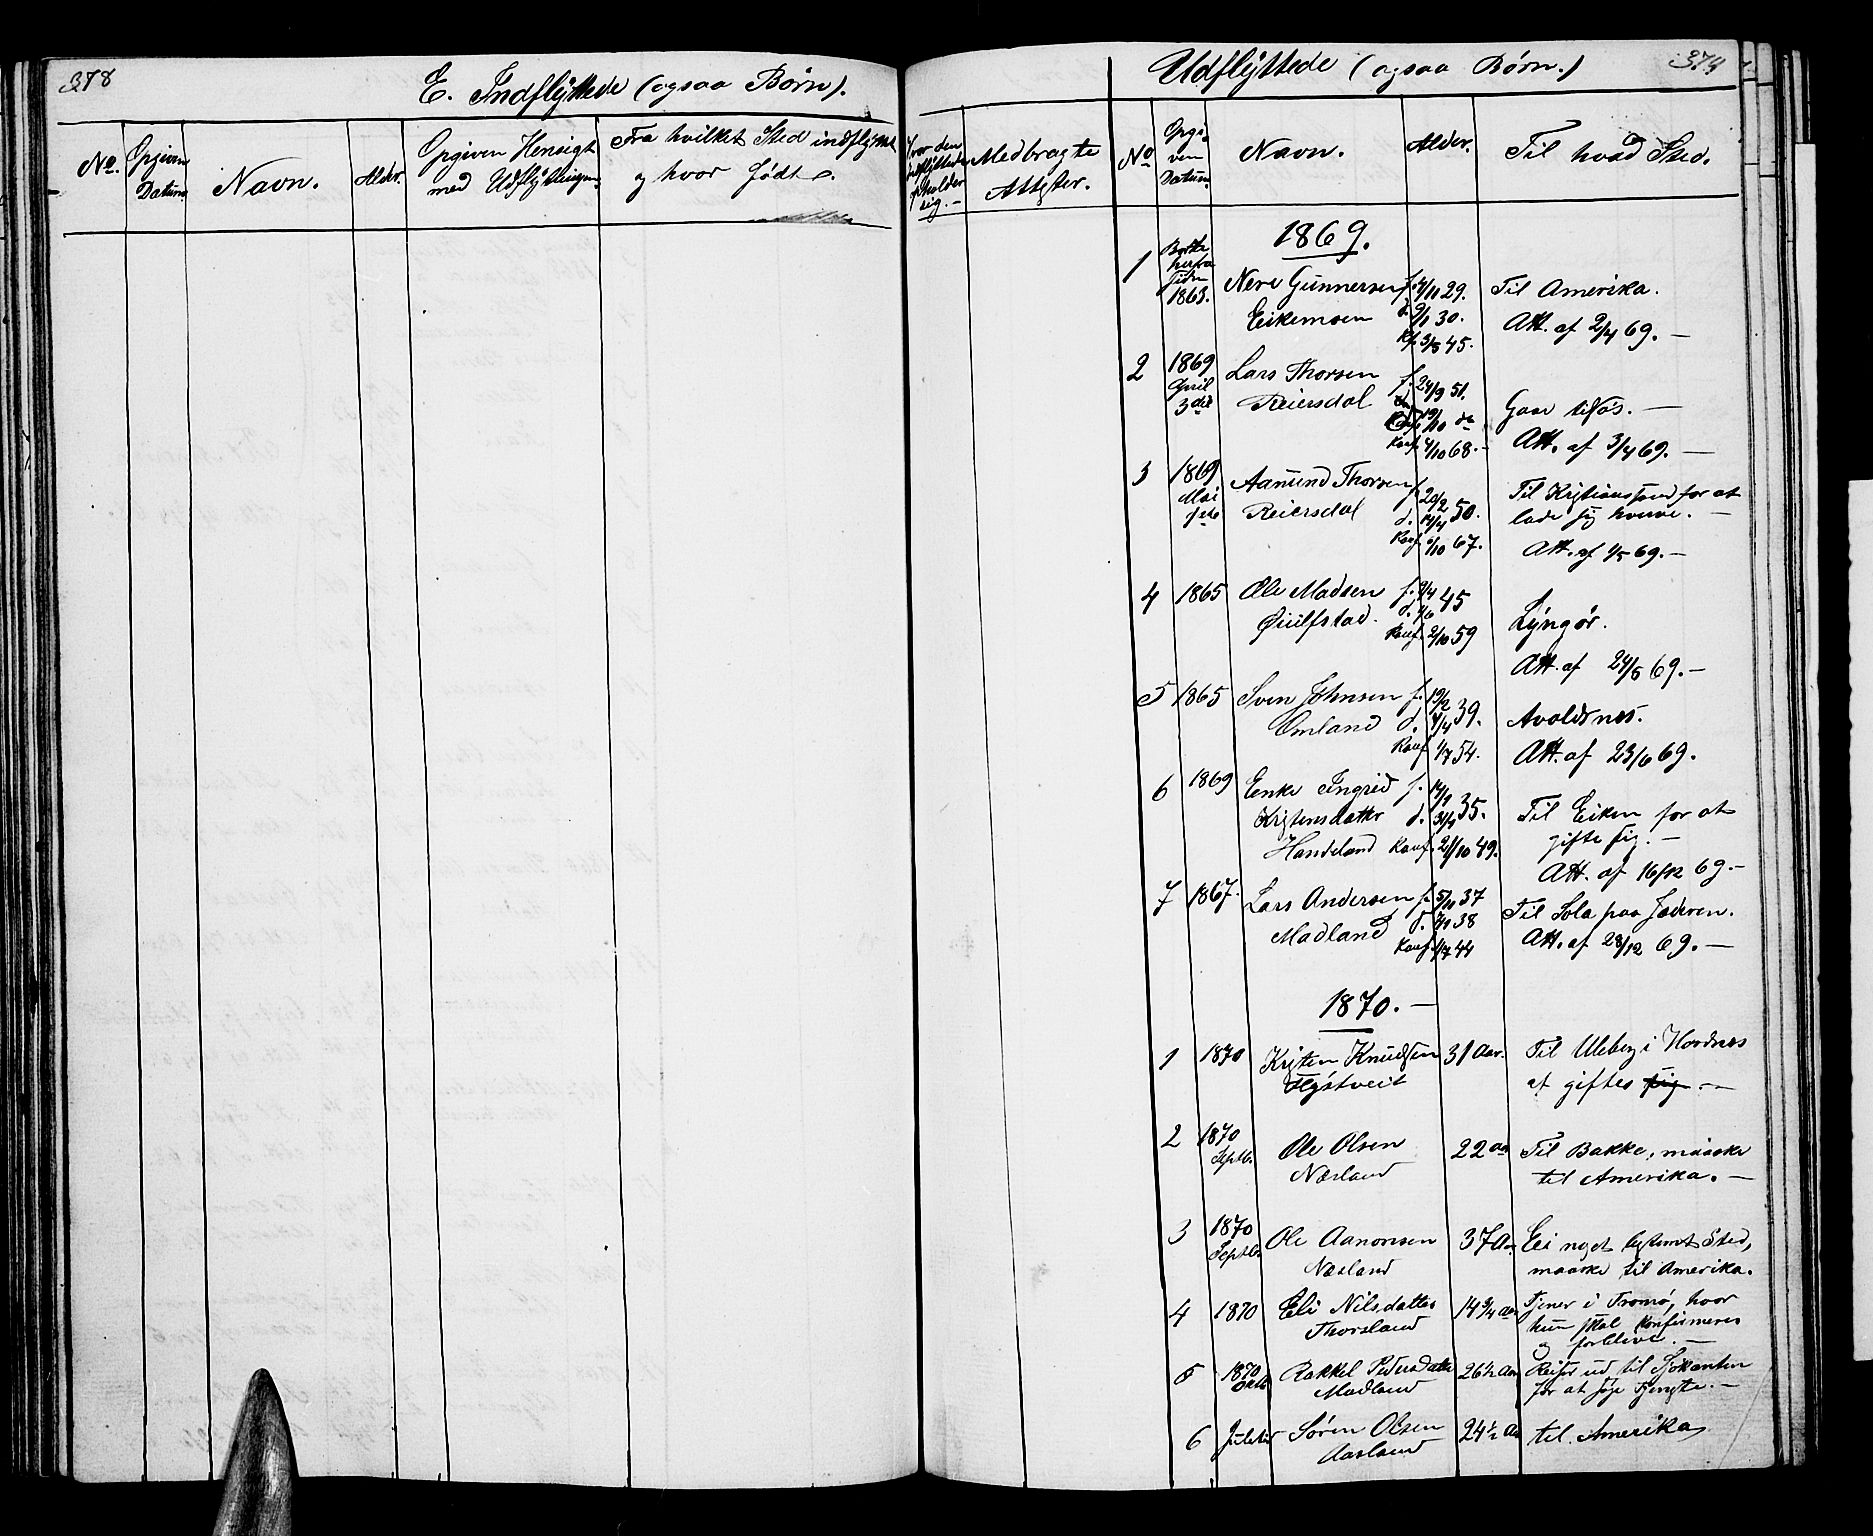 378
E. Indflyttede (ogsaa Børn).
No.
Opgiven
Datum.
Navn.
Alder.
Opgiven Hensigt
med Udflytningen.
Fra hvilket Sted indflyttet
og hvor født.
Hvor den
indflyttede
opholder
sig.
Medbragte
Attester.
Udflyttede (ogsaa Børn.)
379
No
Opgi-
ven
Datum.
Navn.
Alder.
Til hvad Sted.
1869.
1
herfra
siden
1863.
Nere Gunnersen f. 4/11 29.
Til Amerika.
Eikemoen d. 9/1 30.
Kf. 3/8 45.
Att. af 2/4 69. —
2
1869
April
3die
Lars Thorsen f. 24/9 51.
Reiersdal
Konf. 4/10 68. —
Gaar tilsøs. —
Att. af 3/4 69. —
3
1869
Mai
1ste
Aanund Thorsen f. 20/2
Reiersdal d. 14/4 50.
Konf. 6/10 67.
Til Kristianssand for at
lade sig hverve. —
Att. af 1/5 69. —
4
1865
Ole Madsen f. 9/4 45
Øiulfstad. d. 1/6
Konf. 2/10 59
Lyngør.
Att. af 24/5 69. —
5
1865
Sven Johnsen f. 19/2
Omland d. 4/4 39.
Konf 1/7 54.
Avaldsnes.
Att. af 23/6 69.
6
1869
Enke Ingrid f.
Kristensdatter d. 35.
Handeland Konf. 21/10 49.
Til Eiken for at
gifte sig. —
Att. af 16/12 69. —
7
1867.
Lars Andersen f. 5/11 37
Madland d. 38
Konf. 1/7 44
Til Sola paa Jæderen.
Att. af 28/12 69. —
1870. —
1
1870
Kristen Knudsen 31 Aar.
Høstveit
Til Uleberg i Hordnes
at giftes sig. —
2
1870
Septb.
Ole Olsen
Næsland
22 aar
Til Bakke, maaske
til Amerika. —
3
1870
Septbr.
Ole Aanonsen
Næsland
37 Aar
Ei noget bestemt Sted,
maaske til Amerika.
4
1870
Eli Nilsdatter
Thorsland
14 3/4 aar
Tjener i Tromø, hvor
hun skal konfirmeres
og forblive. —
5
1870
Oktb.
Rakkel Pedersdatter
Madland
26 1/2 Aar
Reiser ud til Søkanten
for at søge Tjeneste. —
6
Juletid
Søren Olsen
Aasland
24 1/2 Aar
til Amerika